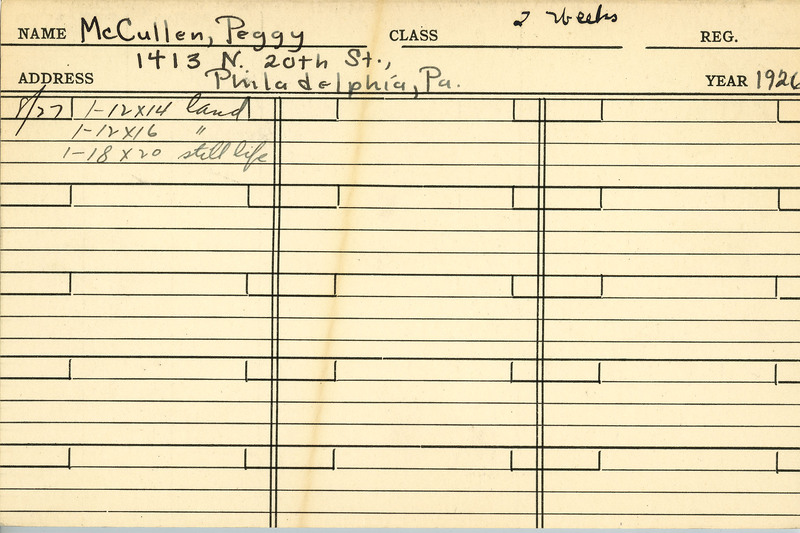 NAME McCullen, Peggy CLASS 2 Weeks REG.
1413 N. 20th St.,
ADDRESS Philadelphia, Pa. YEAR 1926
8/27 1-12x14 land
1-12x16 "
1-18x20 still life